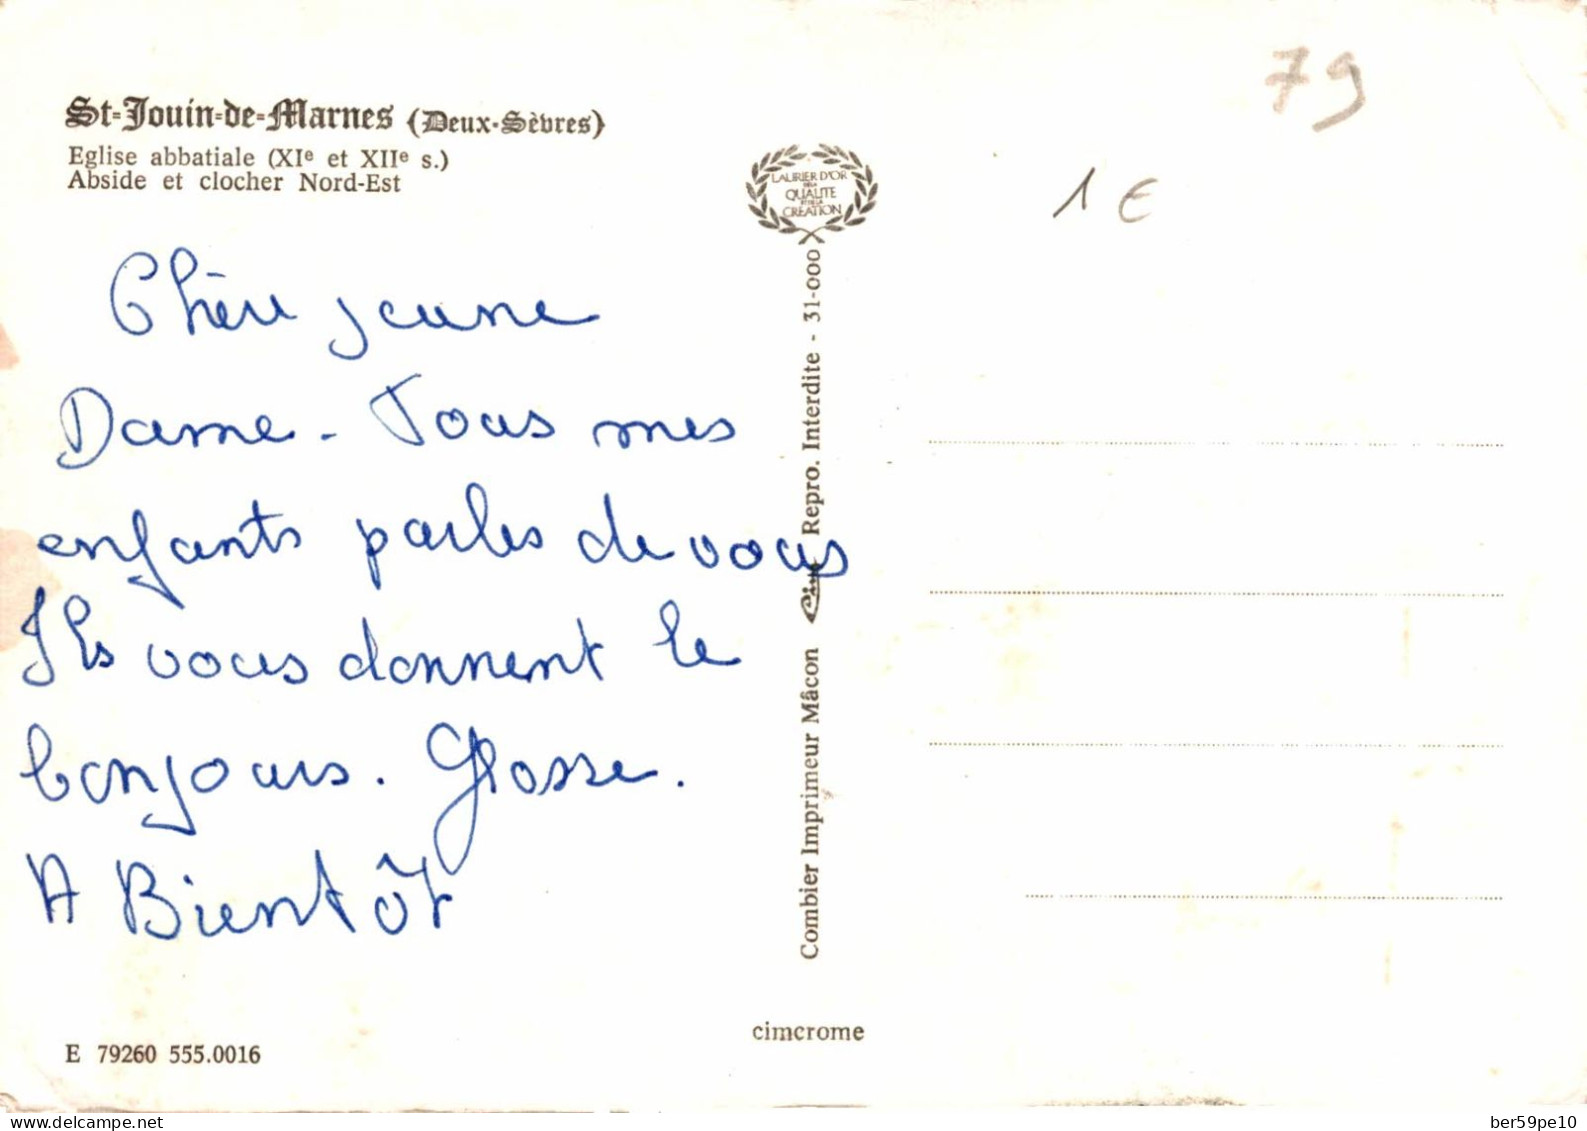 St-Jouin-de-Marnes (Deux-Sèvres)
Eglise abbatiale (XIe et XIIe s.)
Abside et clocher Nord-Est
Chère jeune
Dame - Tous mes
enfants parles de vous
Ils vous donnent le
bonjours. Glosse.
A Bientôt
E 79260 555.0016
LAURIER D'OR
DE LA
QUALITE
ET DE LA
CREATION
Combier Imprimeur Mâcon Cim Repro. Interdite - 31-000
cimcrome
79
1 €
delcampe.net
ber59pe10